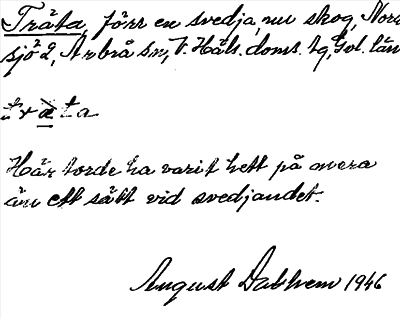 Träta, förr en svedja, nu skog, Nors
sjö 2, Arbrå sn, V. Häls. doms. tg, Gvl. län
träta
Här torde ha varit hett på mera
än ett sätt vid svedjandet.
August Dalhem 1946